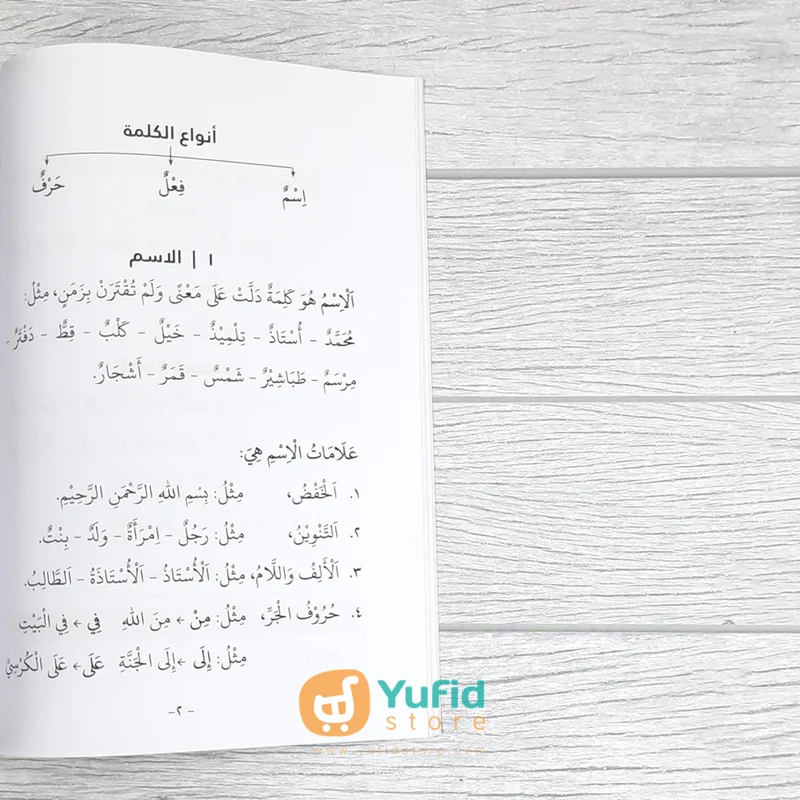 أنواع الكلمة
اِسْمٌ فِعْلٌ حَرْفٌ
١ | الاسم
اَلْاِسْمُ هُوَ كَلِمَةٌ دَلَّتْ عَلَى مَعْنًى وَلَمْ تُقْتَرَنْ بِزَمَنٍ، مِثْلُ:
مُحَمَّدٌ - أُسْتَاذٌ - تِلْمِيْذٌ - خَيْلٌ - كَلْبٌ - قِطٌّ - دَفْتَرٌ -
مِرْسَمٌ - طَبَاشِيْرٌ - شَمْسٌ - قَمَرٌ - أَشْجَارٌ.
عَلَامَاتُ الْاِسْمِ هِيَ:
١. اَلْخَفْضُ، مِثْلُ: بِسْمِ اللهِ الرَّحْمَنِ الرَّحِيْمِ.
٢. اَلتَّنْوِيْنُ، مِثْلُ: رَجُلٌ - اِمْرَأَةٌ - وَلَدٌ - بِنْتٌ.
٣. اَلْأَلِفُ وَاللَّامُ، مِثْلُ: اَلْأُسْتَاذُ - اَلْأُسْتَاذَةُ - اَلطَّالِبُ.
٤. حُرُوْفُ الْجَرِّ، مِثْلُ: مِنْ > مِنَ اللهِ فِي > فِي الْبَيْتِ
مِثْلُ: إِلَى > إِلَى الْجَنَّةِ عَلَى > عَلَى الْكُرْسِيِّ
- ٢ -
Yufid
store
www.yufidstore.com